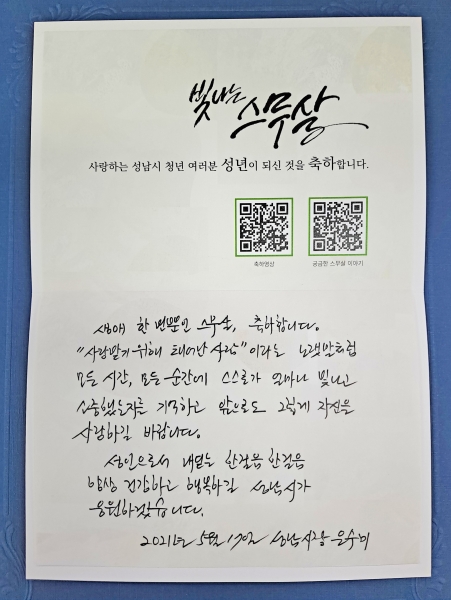 빛나는
스무살
사랑하는 성남시 청년 여러분 성년이 되신 것을 축하합니다.
축하영상 궁금한 스무살 이야기
생애 한 번뿐인 스무살, 축하합니다.
"사랑받기 위해 태어난 사람"이라는 노랫말처럼
모든 시간, 모든 순간에 스스로가 얼마나 빛나고
소중했는지를 기억하고 앞으로도 그렇게 자신을
사랑하길 바랍니다.
성인으로서 내딛는 한걸음 한걸음
항상 건강하고 행복하길 성남시가
응원하겠습니다.
2021년 5월 17일 성남시장 은수미